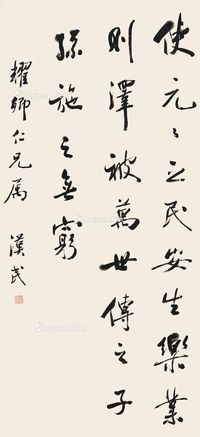 使元々之民安生樂業
則澤被萬世傳之子
孫施之無窮
耀卿仁兄屬 漢民